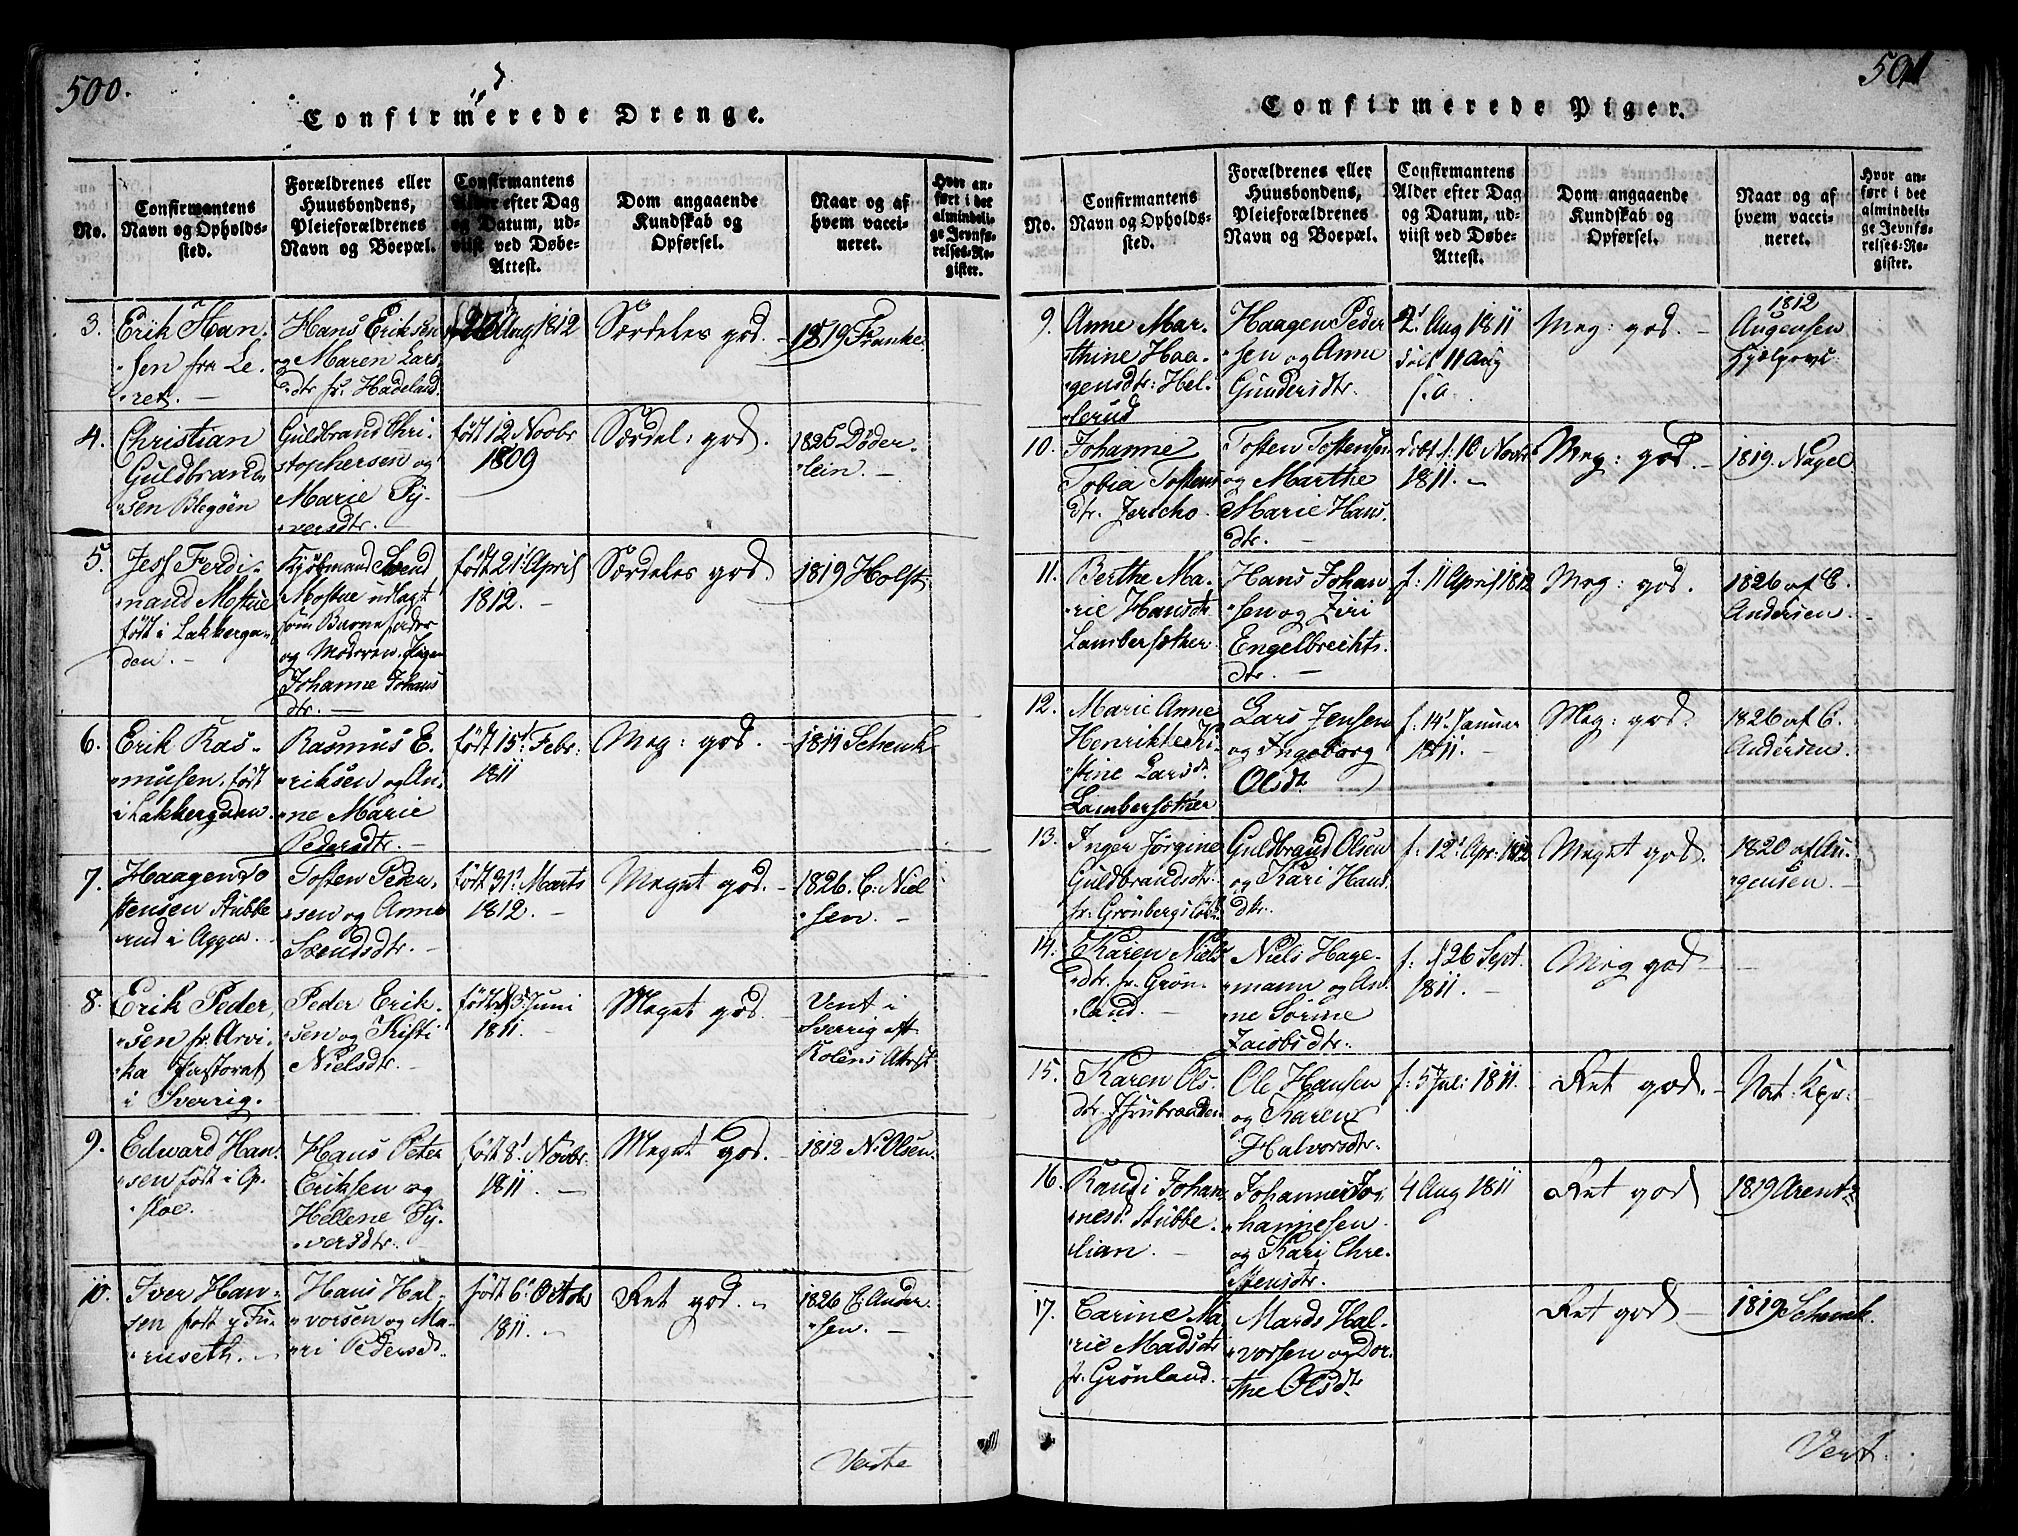 500.
Confirmerede Drenge.
No.
Confirmantens
Navn og Opholds-
sted.
Forældrenes eller
Huusbondens,
Pleieforældrenes
Navn og Boepæl.
Confirmantens
Alder efter Dag
og Datum, ud-
viist ved Døbe-
Attest.
Dom angaaende
Kundskab og
Opførsel.
Naar og af
hvem vacci-
neret.
Hvor an-
ført i det
almindeli-
ge Jevnfø-
relses-Re-
gister.
3.
Erik Han-
sen fra Le-
ret. -
Hans Eriksen
og Maren Lars
dtr fr. Hadeland.
Aug 1812
Særdeles god. -
1819 Franke.
4.
Christian
Guldbrand
sen Blegøen
Guldbrand Chri-
stophersen og
Marie Sy-
versdtr. -
født 12 Novbr
1809
Særdel: god.
1826 Døder-
lein. -
5.
Jess Ferdi-
nand Mostue
født i Lakkerga-
den. -
Kjøbmand Svend
Mostue udlagt
som Barnefader
og Moderen Pigen
Johanne Johans
dtr. -
født 21' April
1812. -
Særdeles god.
1819 Holst.
6.
Erik Ras-
musen, født
i Lakkergaden.
Rasmus E-
riksen og An-
ne Marie
Pedersdtr. -
født 15' Febr.
1811
Meg: god. -
1811 Schenk
7.
Haagen To
stensen Stubbe
rud i Agger. -
Tosten Peder-
sen og Anne
Svendsdtr. -
født 31' Marts
1812. -
Meget god. -
1826. C: Niel
sen. -
8.
Erik Peder-
sen fr. Arvi-
ka Pastorat
i Sverrig.
Peder Erik-
sen og Kisti
Nielsdtr. -
født 3' Juni
1811. -
Meget god.
Vent i
Sverrig eft.
Attest
9.
Edward Han-
sen født i Op-
sloe.
Hans Peter
Eriksen og
Hellene Sy-
versdtr.
født 8' Novbr.
1811. -
Meget god.
1812 N: Olsen
10.
Iver Han-
sen født i Fu-
ruseth. -
Hans Hal-
vorsen og Ma-
ri Pedersdt.
født 6' Octob
1811. -
Ret god. -
1826 C: Ander
sen. -
Verte
501
Confirmerede Piger.
No.
Confirmantens
Navn og Opholds-
sted.
Forældrenes eller
Huusbondens,
Pleieforældrenes
Navn og Boepæl.
Confirmantens
Alder efter Dag
og Datum, ud-
viist ved Døbe-
Attest.
Dom angaaende
Kundskab og
Opførsel.
Naar og af
hvem vacci-
neret.
Hvor an-
ført i det
almindeli-
ge Jevnfø-
relses-Re-
gister.
9.
Anne Mar-
thine Haa-
gensdtr: Hel-
lerud
Haagen Peder
sen og Anne
Gundersdtr.
2' Aug 1811
døbt 11 Aug
s. a.
Meg: god. -
1812
Augensen
10.
Johanne
Tobia Tostens
dtr. Jericho.
Tosten Tostensen
og Marthe
Marie Hans
dtr. -
døbt f: 10 Novbr
1811. -
Meg: god. -
1819. Nagel
11.
Berthe Ma-
rie Hansdtr
Lambersæther
Hans Johan
sen og Ziri
Engelbrechts
dtr. -
f: 11 April 1812
Meg: god.
1826 af C.
Andersen. -
12.
Marie Anne
Henrikke Ki
stine Larsdt.
Lambersætther
Lars Jensen
og Ingeborg
Olsdt.
f: 14' Januar
1811. -
Meg: god.
1826 af C.
Andersen. -
13.
Inger Jørgine
Guldbrandsdtr.
fr: Grønberg i
Guldbrand Olsen
og Kari Hans
dtr.
f: 12' Apr: 1812
Meget god.
1820 af Au-
gensen. -
14.
Karen Niels
dtr. fr. Grøn-
land. -
Niels Hage-
mann og An-
ne Sørine
Jacobsdtr.
f: 26 Sept.
1811. -
Meg god -
-
15.
Karen Ols-
dtr.
Ole Hansen
og Karen
Halvorsdtr.
f: 5 Juli 1811.
Ret god. -
Nat: Kpr.
16.
Randi Johan-
nesd. Stubbe-
lian. -
Johannes Jo-
hannesen
og Kari Chre-
stensdtr.
4 Aug 1811
Ret god
1819 Arentz
17.
Carine Ma-
rie Madsdtr
fr. Grønland. -
Mads Hal-
vorsen og Dor-
the Olsdt.
Ret god -
1819 Schenk.
Vert.